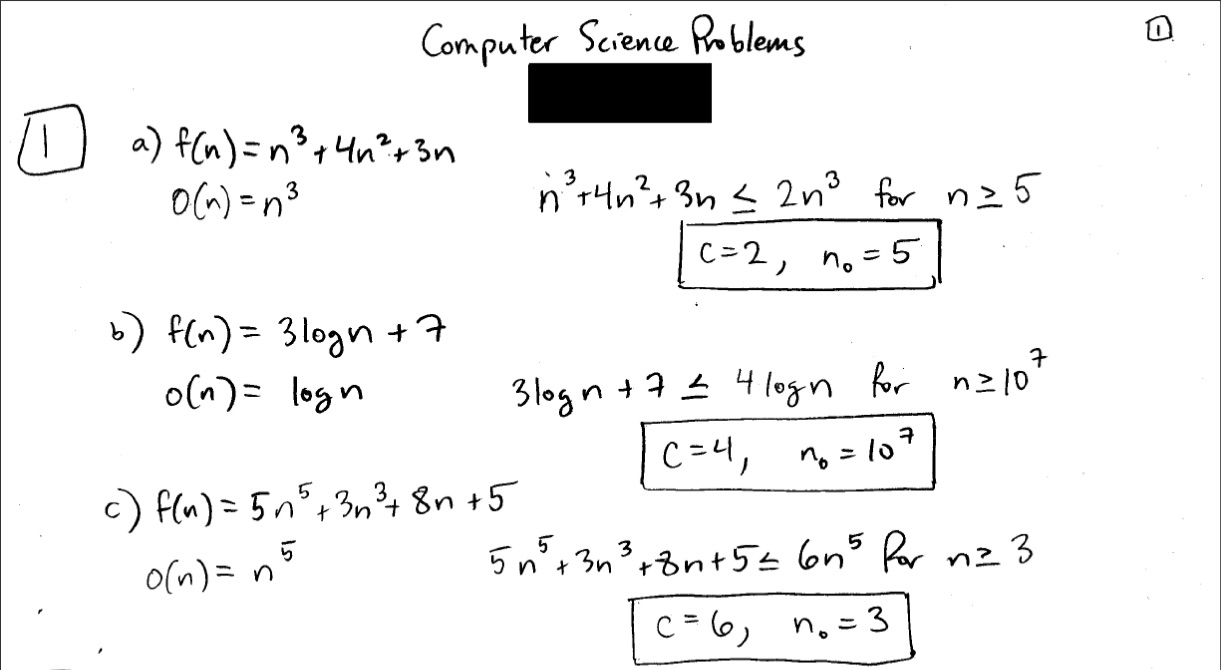 Computer Science Problems
1
1
a) f(n) = n³ + 4n² + 3n
O(n) = n³
n³ + 4n² + 3n ≤ 2n³ for n ≥ 5
c = 2, n₀ = 5
b) f(n) = 3logn + 7
O(n) = logn
3logn + 7 ≤ 4logn for n ≥ 10⁷
c = 4, n₀ = 10⁷
c) f(n) = 5n⁵ + 3n³ + 8n + 5
O(n) = n⁵
5n⁵ + 3n³ + 8n + 5 ≤ 6n⁵ for n ≥ 3
c = 6, n₀ = 3